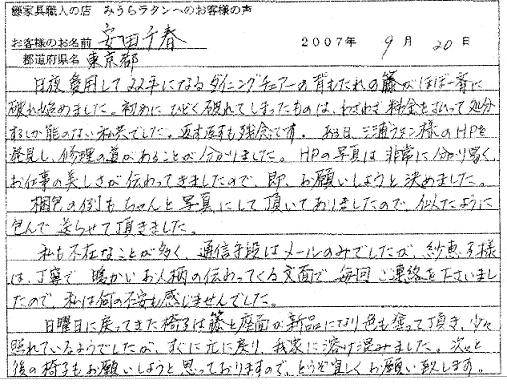 籐家具職人の店 みうらラタンへのお客様の声
お客様のお名前 安田千春 2007年 9月 20日
都道府県名 東京都
日夜愛用して22年になるダイニングチェアーの背もたれの籐がほぼ一斉に
破れ始めました。初めにひどく破れてしまったものは、わざわざ料金を払って処分
するしか能のない私共でした。返す返すも残念です。ある日、三浦ラタン様のHPを
発見し、修理の道があることが分かりました。HPの写真は非常に分かり易く、
お仕事の美しさが伝わってきましたので、即、お願いしようと決めました。
梱包の例もちゃんと写真にして頂いておりましたので、似たように
包んで送らせて頂きました。
私も不在なことが多く、通信手段はメールのみでしたが、紗恵子様
は、丁寧で暖かいお人柄の伝わってくる文面で、毎回ご連絡を下さいまし
たので、私は何の不安も感じませんでした。
日曜日に戻ってきた椅子は籐と座面が新品になり色も塗って頂き、少々
照れているようでしたが、すぐに元に戻り、我家に溶け込みました。次々と
後の椅子もお願いしようと思っておりますので、どうぞ宜しくお願い致します。